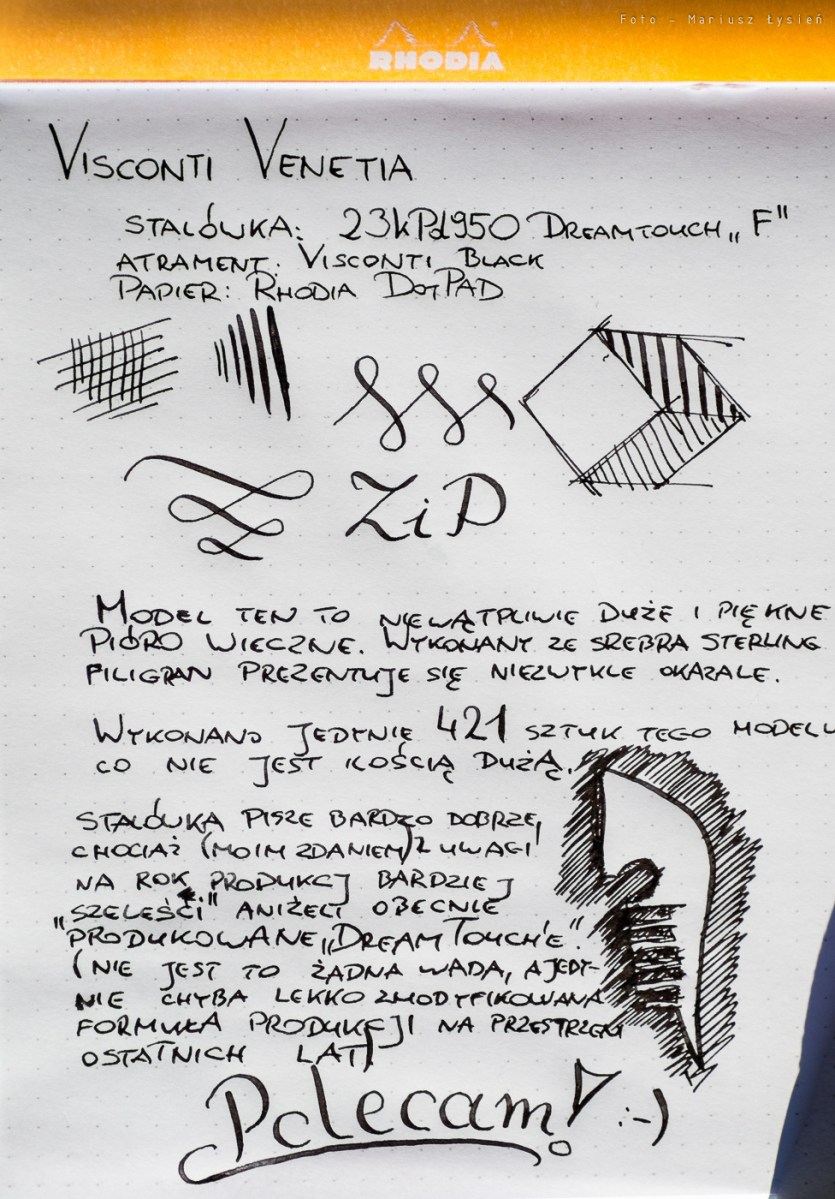 Foto - Mariusz Łysień
RHODIA
VISCONTI VENETIA
STALÓWKA: 23kPd950 DREAMTOUCH „F"
ATRAMENT: VISCONTI BLACK
PAPIER: RHODIA DOTPAD
ZiP
MODEL TEN TO NIEWĄTPLIWIE DUŻE I PIĘKNE
PIÓRO WIECZNE. WYKONANY ZE SREBRA STERLING
FILIGRAN PREZENTUJE SIĘ NIEZWYKLE OKAZALE.
WYKONANO JEDYNIE 421 SZTUK TEGO MODELU
CO NIE JEST ILOŚCIĄ DUŻĄ.
STALÓWKA PISZE BARDZO DOBRZE,
CHOCIAŻ (MOIM ZDANIEM) Z UWAGI
NA ROK PRODUKCJ BARDZIEJ
„SZELEŚCI" ANIŻELI OBECNIE
PRODUKOWANE „DREAMTOUCH'E".
(NIE JEST TO ŻADNA WADA, A JEDY-
NIE CHYBA LEKKO ZMODYFIKOWANA
FORMUŁA PRODUKCJI NA PRZESTRZENI
OSTATNICH LAT)
Polecam! :-)